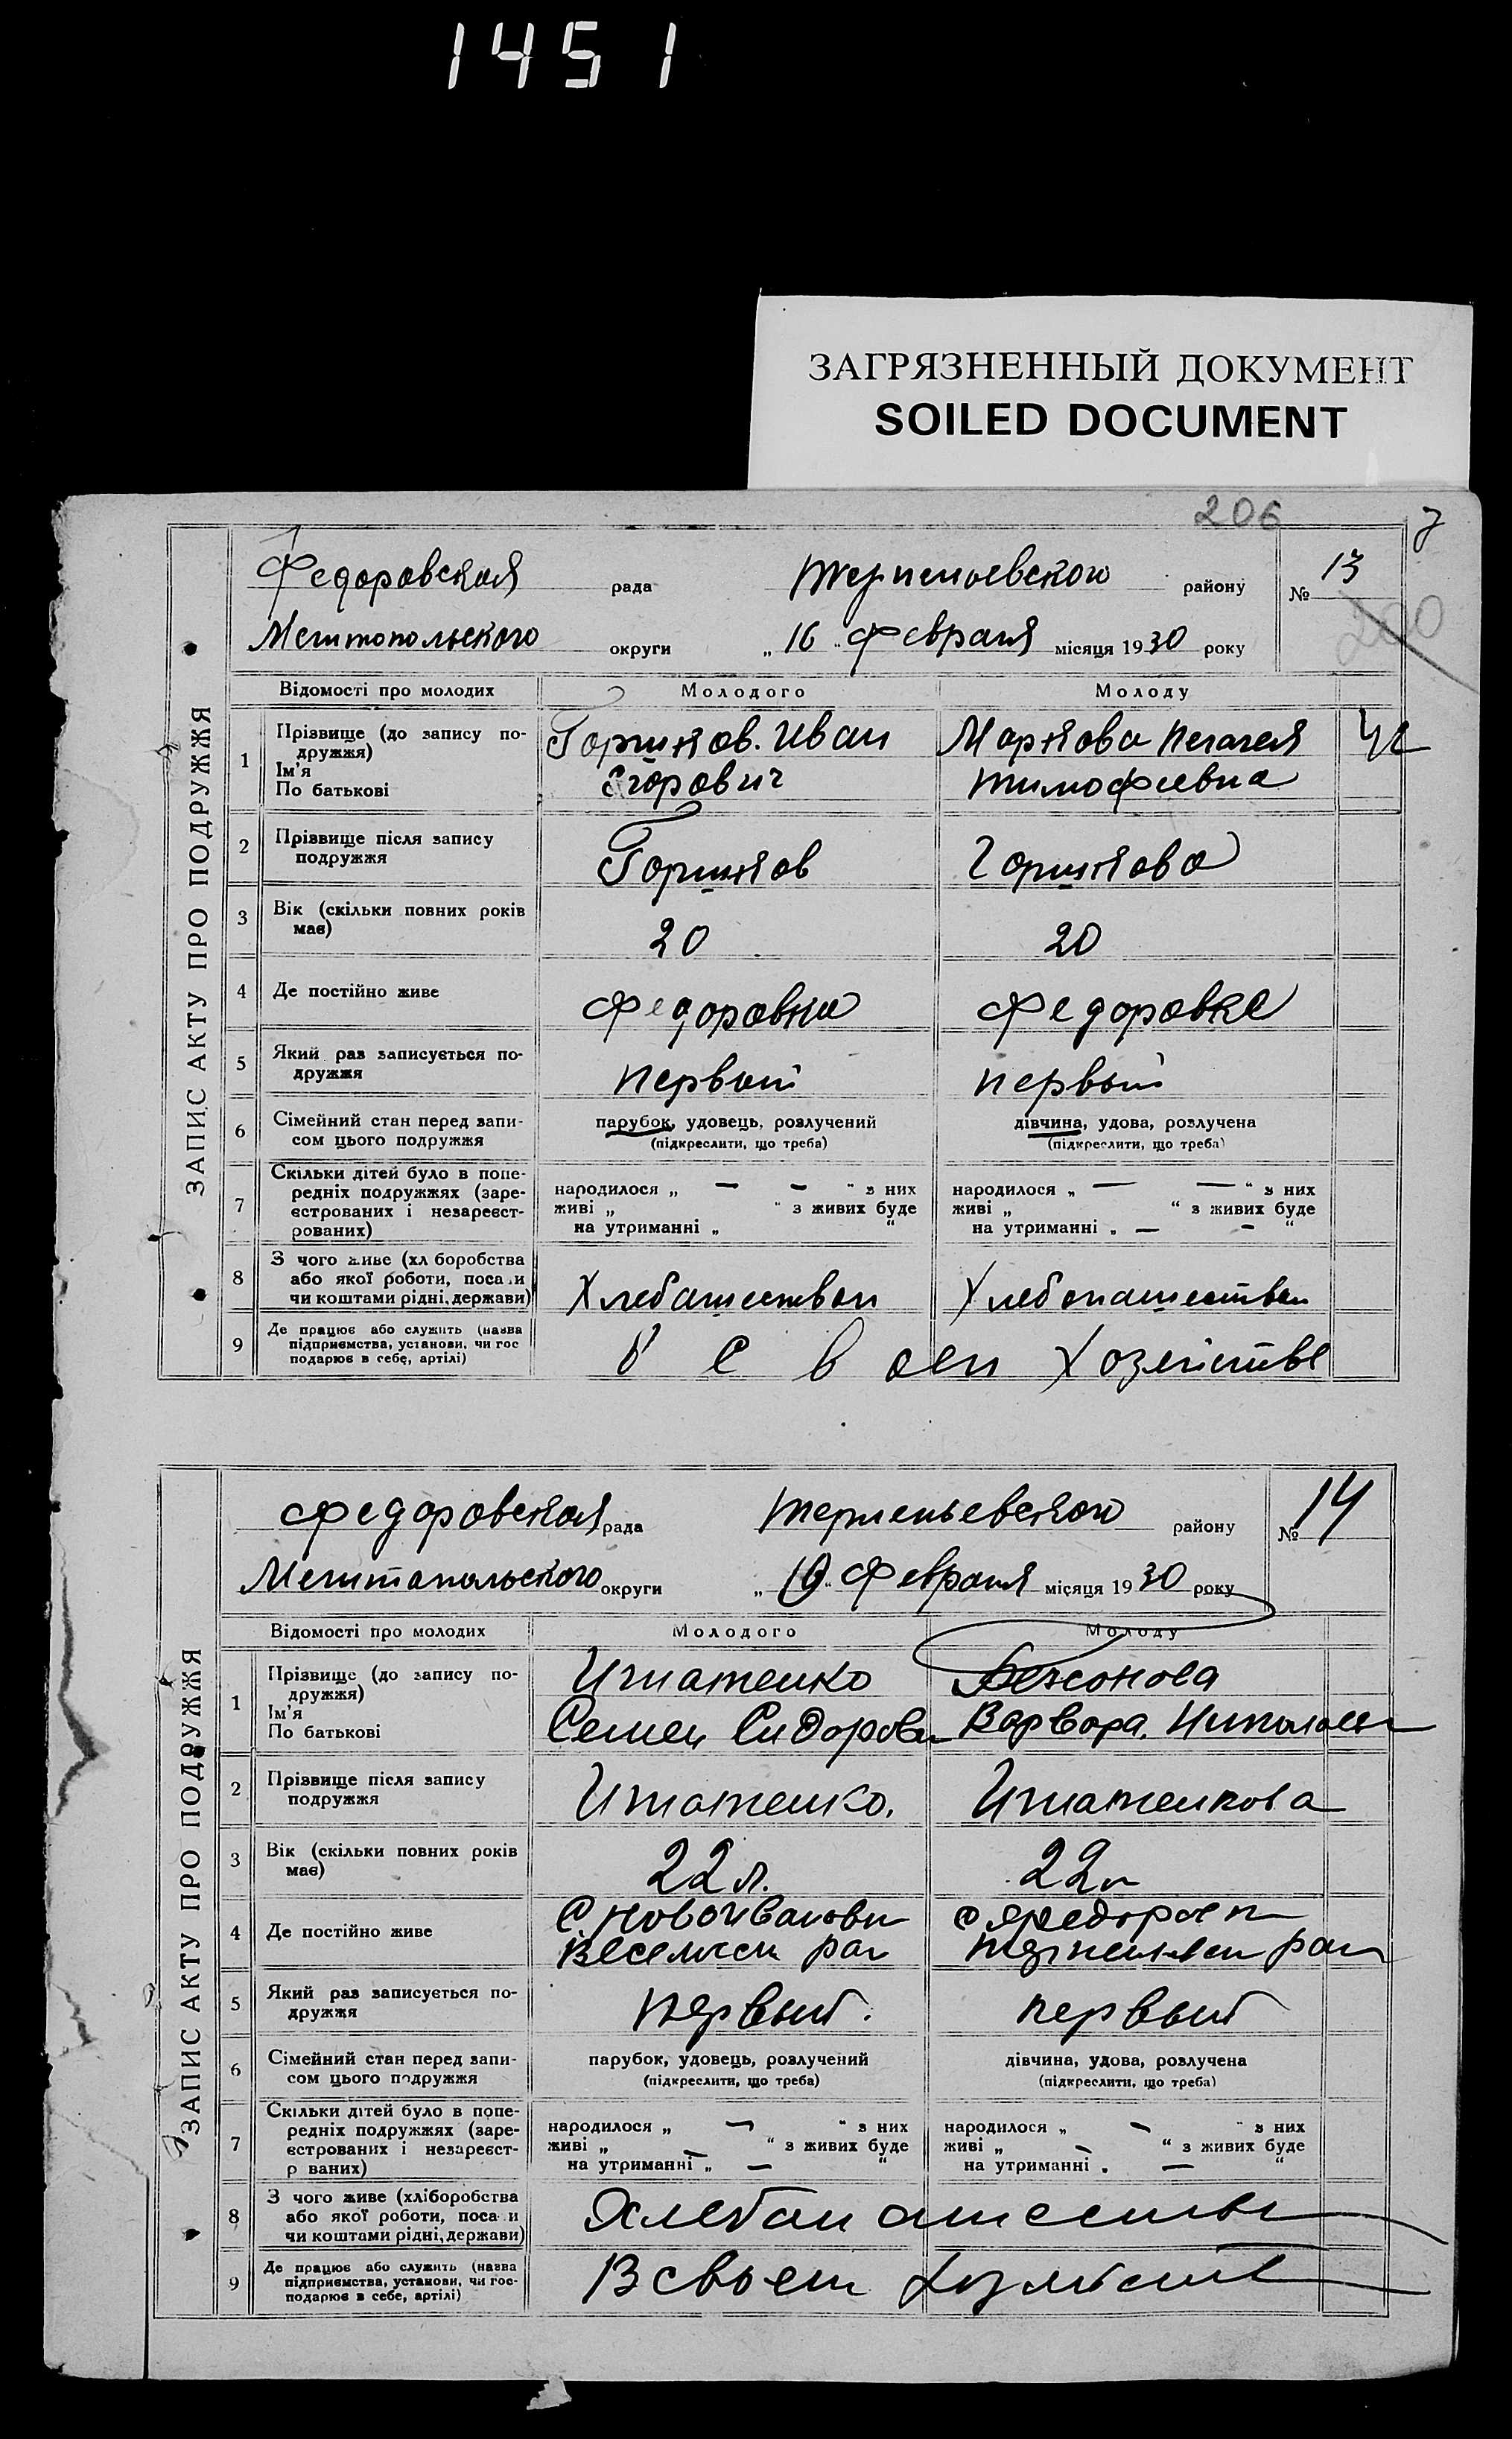 1451
ЗАГРЯЗНЕННЫЙ ДОКУМЕНТ
SOILED DOCUMENT
206
7
ЗАПИС АКТУ ПРО ПОДРУЖЖЯ
Федоровская рада району № 13
200
Мелитопольского округи „16" Февраля місяця 1930 року
Відомості про молодих Молодого Молоду
1 Прізвище (до запису подружжя) Ім'я По батькові
Горшков. Иван Маркова Пелагея
Егорович Тимофеевна
2 Прізвище після запису
подружжя
Горшков Горшкова
3 Вік (скільки повних років
має)
20 20
4 Де постійно живе Федоровка Федоровке
5 Який раз записується по-
дружжя
первый первый
6 Сімейний стан перед запи-
сом цього подружжя
парубок, удовець, розлучений дівчина, удова, розлучена
(підкреслити, що треба) (підкреслити, що треба)
7 Скільки дітей було в попе-
редніх подружжях (заре-
єстрованих і незареєст-
рованих)
народилося „ — — " з них народилося „ — — " з них
живі „ " з живих буде живі „ " з живих буде
на утриманні „ " на утриманні „ — — "
8 З чого живе (хл боробства
або якої роботи, поса и
чи коштами рідні, держави)
Хлебопашеством
9 Де працює або служить (назва
підприємства, установи, чи гос
подарює в себе, артілі)
хозяйстве
ЗАПИС АКТУ ПРО ПОДРУЖЖЯ
Федоровская рада району № 14
Мелитопольского округи Февраля місяця 1930 року
Відомості про молодих Молодого Молоду
1 Прізвище (до запису по-
дружжя)
Ім'я
По батькові
Игнатенко
Семен Сидорови Варвара
2 Прізвище після запису
подружжя
Игнатенко. Игнатенкова
3 Вік (скільки повних років
має)
22 л. 22 л
4 Де постійно живе
С Новоивановки
5 Який раз записується по-
дружжя
первый. первый
6 Сімейний стан перед запи-
сом цього подружжя
парубок, удовець, розлучений дівчина, удова, розлучена
(підкреслити, що треба) (підкреслити, що треба)
7 Скільки дітей було в попе-
редніх подружжях (заре-
єстрованих і незареєст-
р ваних)
народилося „ — " з них народилося „ — " з них
живі „ — " з живих буде живі „ — " з живих буде
на утриманні „ — " на утриманні „ — "
8 З чого живе (хліборобства
або якої роботи, поса и
чи коштами рідні, держави)
9 Де працює або служить (назва
підприємства, установи, чи гос-
подарює в себе, артілі)
В своем